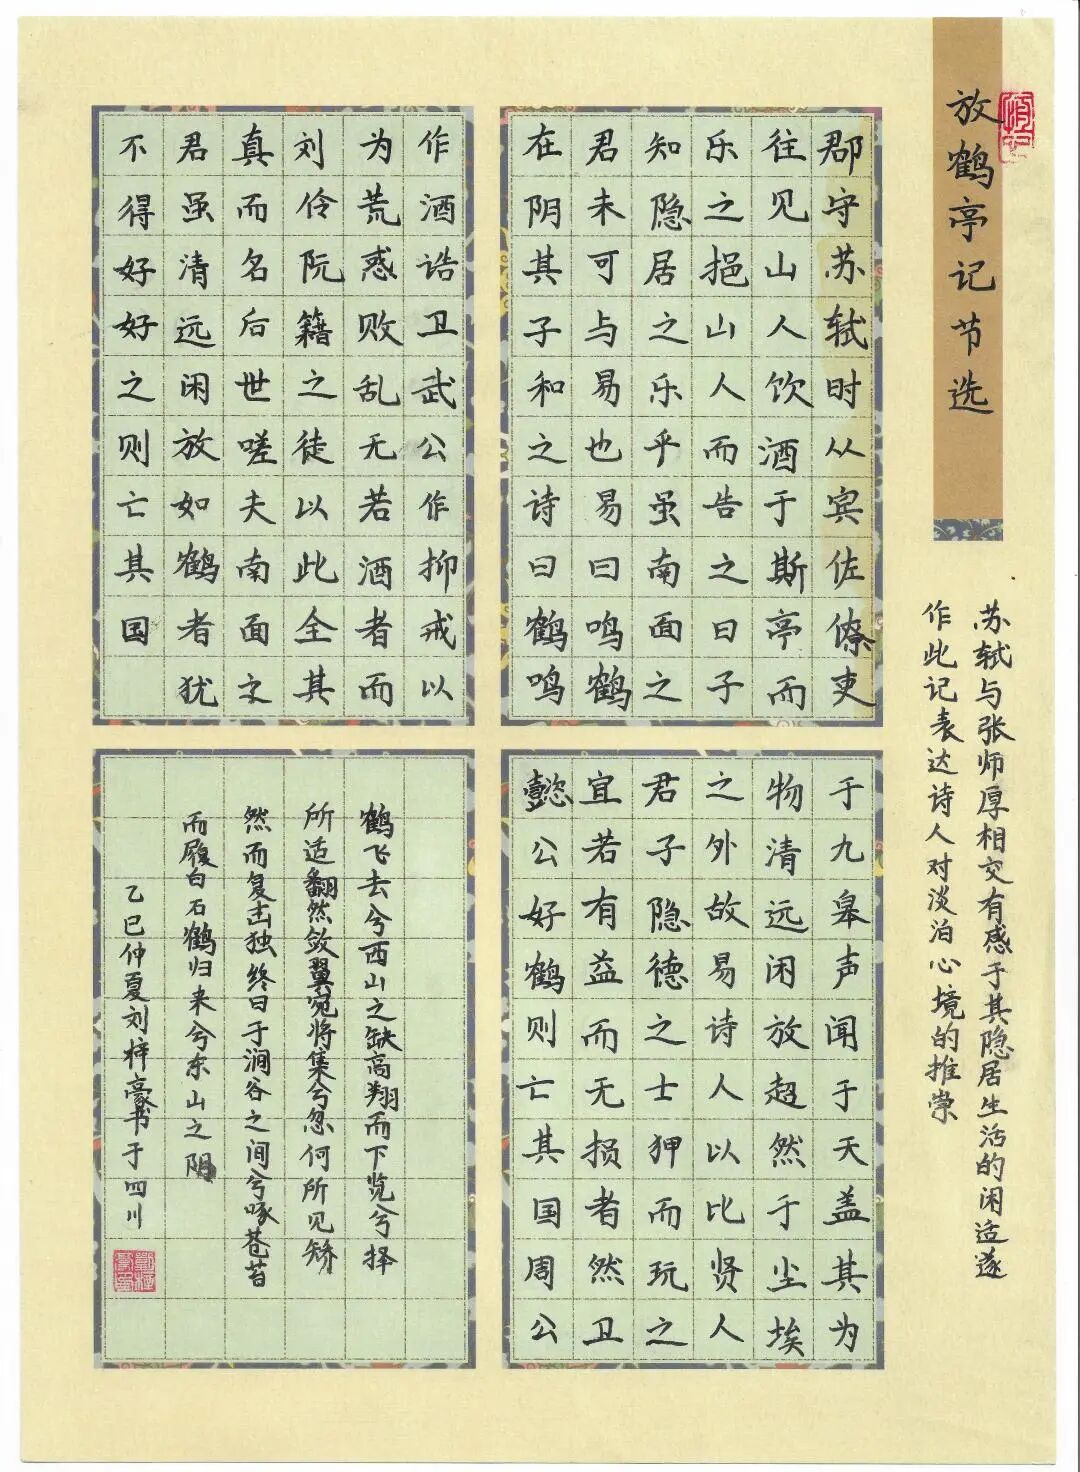 放鹤亭记节选
苏轼与张师厚相交有感于其隐居生活的闲适遂
作此记表达诗人对淡泊心境的推崇
郡守苏轼时从宾佐僚吏
往见山人饮酒于斯亭而
乐之挹山人而告之曰子
知隐居之乐乎虽南面之
君未可与易也易曰鸣鹤
在阴其子和之诗曰鹤鸣
于九皋声闻于天盖其为
物清远闲放超然于尘埃
之外故易诗人以比贤人
君子隐德之士狎而玩之
宜若有益而无损者然卫
懿公好鹤则亡其国周公
作酒诰卫武公作抑戒以
为荒惑败乱无若酒者而
刘伶阮籍之徒以此全其
真而名后世嗟夫南面之
君虽清远闲放如鹤者犹
不得好好之则亡其国
鹤飞去兮西山之缺高翔而下览兮择
所适翻然敛翼宛将集兮忽何所见矫
然而复击独终日于涧谷之间兮啄苍苔
而履白石鹤归来兮东山之阴
乙巳仲夏刘梓豪书于四川